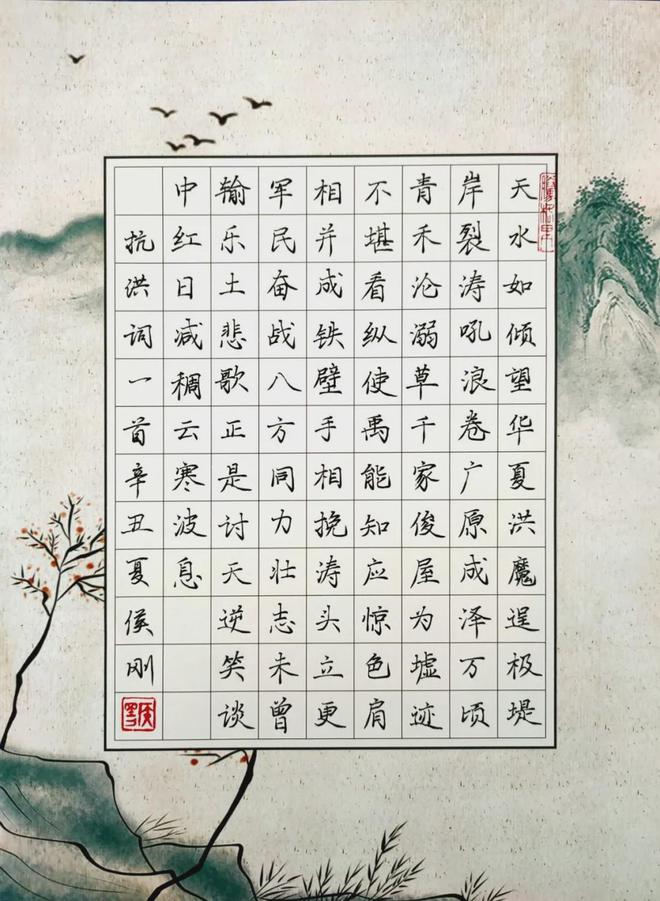 天水如倾望华夏洪魔逞极堤
岸裂涛吼浪卷广原成泽万顷
青禾沦溺草千家俊屋为墟迹
不堪看纵使禹能知应惊色肩
相并成铁壁手相挽涛头立更
军民奋战八方同力壮志未曾
输乐土悲歌正是讨天逆笑谈
中红日减稠云寒波息
抗洪词一首辛丑夏侯刚